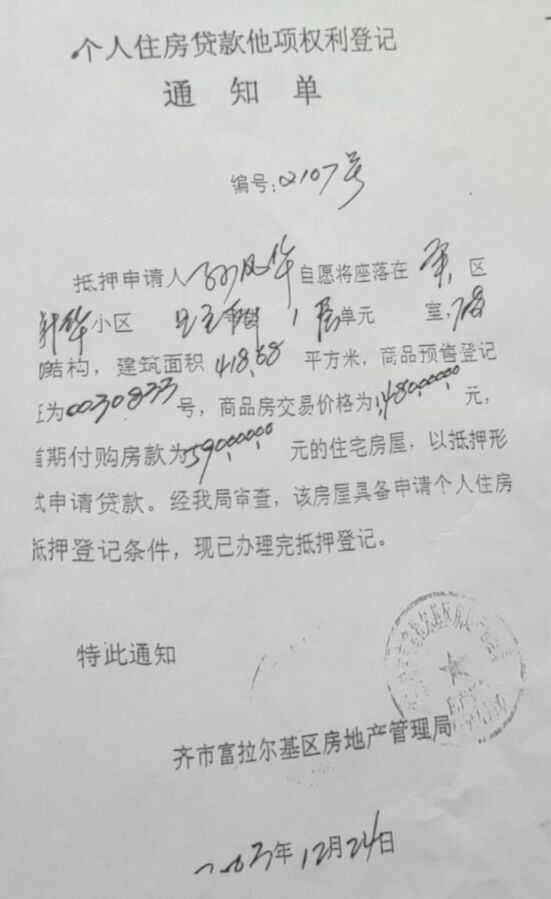 个人住房贷款他项权利登记
通知单
编号:02107号
抵押申请人孙凤华自愿将座落在 区
小区 1 单元 室,
结构,建筑面积418.68平方米,商品预售登记
为0030833号,商品房交易价格为1,480,000.00元,
首期付购房款为590,000.00元的住宅房屋,以抵押形
式申请贷款。经我局审查,该房屋具备申请个人住房
抵押登记条件,现已办理完抵押登记。
特此通知
齐市富拉尔基区房地产管理局
年12月24日